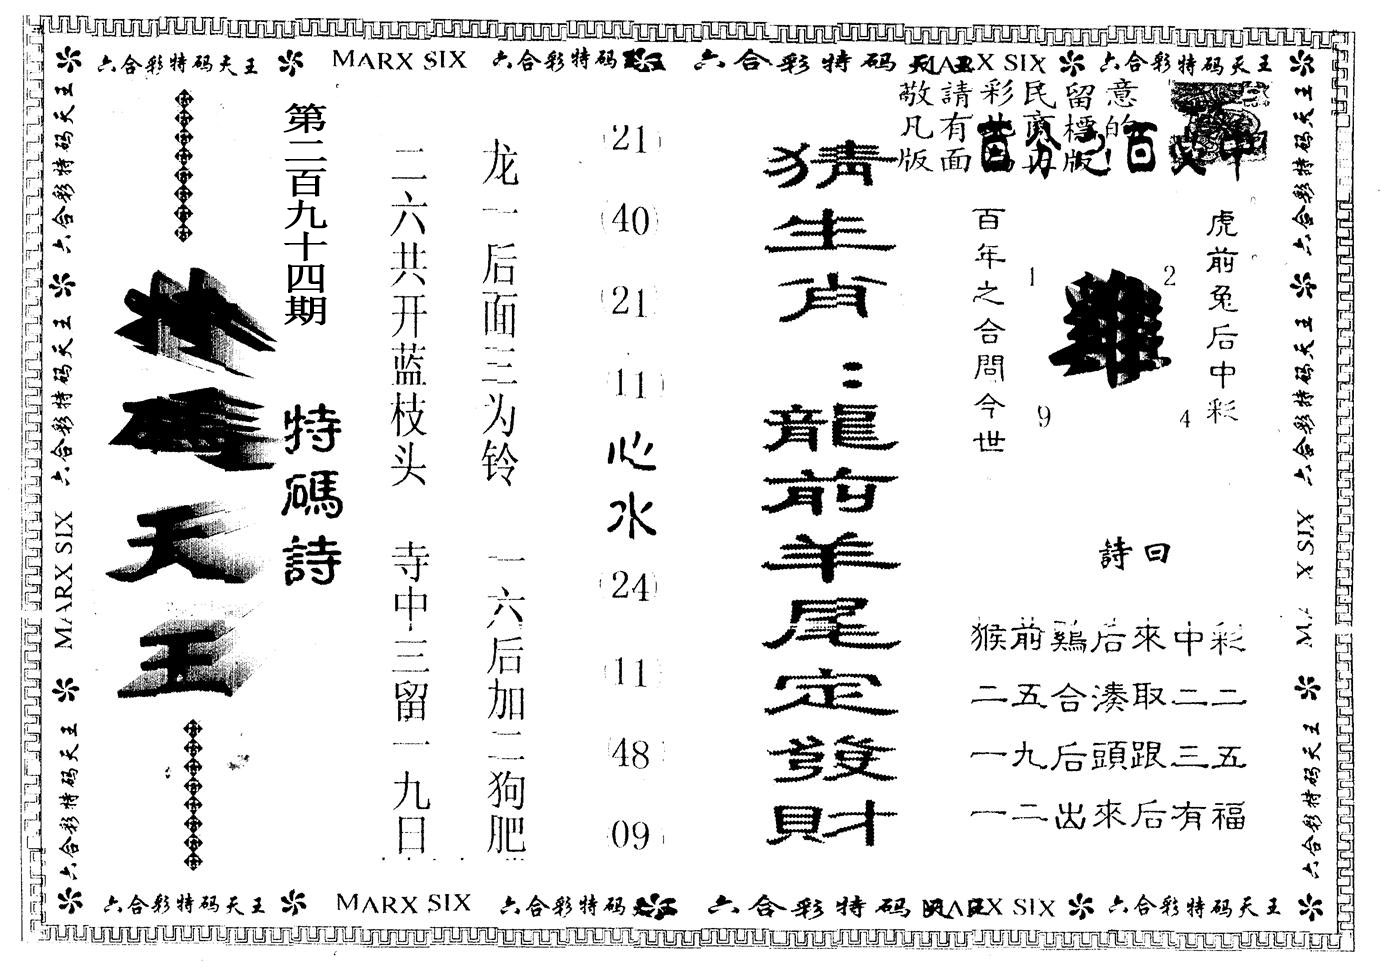 六合彩特码天王 MARX SIX 六合彩特码 六合彩特码天王 MARX SIX 六合彩特码天王
六合彩特码天王
六合彩特码天王
六合彩特码天王
MARX SIX
六合彩特码天王
特碼天王
第二百九十四期
特碼詩
二六共开蓝枝头 寺中三留一九日
龙一后面三为铃 一六后加二狗肥
(21)
(40)
(21)
(11)
心水
(24)
(11)
(48)
(09)
猜生肖：龍前羊尾定發財
敬請彩民留意
凡有
的
版面
版
百分之百必中
百年之合問今世
1
2
雞
9
4
虎前兔后中彩
詩曰
猴前鷄后來中彩
二五合湊取二二
一九后頭跟三五
一二出來后有福
六合彩特码天王
六合彩特码天王
六合彩特码天王
六合彩特码天王
六合彩特码天王 MARX SIX 六合彩特码 六合彩特码 SIX 六合彩特码天王